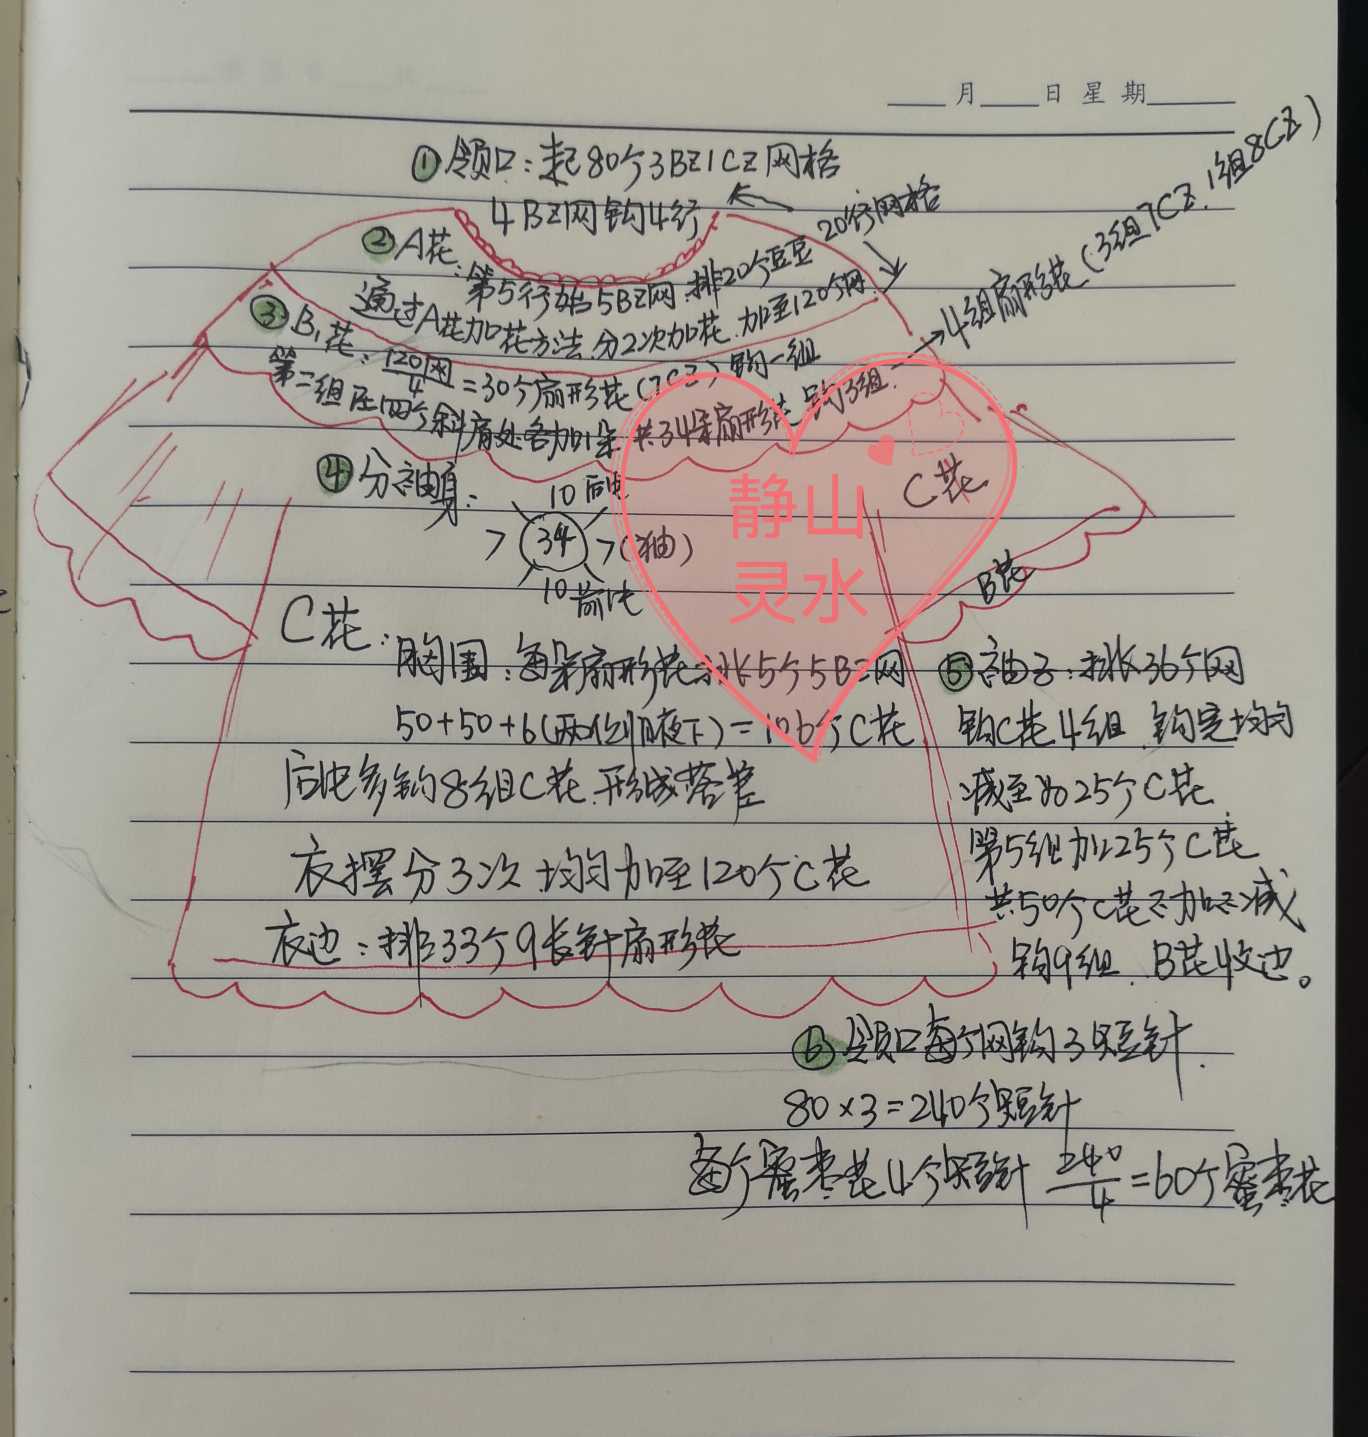 月 日 星 期
①领口：起80个3BZ1CZ网格
4BZ网钩4行
20行网格
②A花：第5行始5BZ网.排20个豆豆
通过A花加花方法.分2次加花.加至120个网.
③B₁花：120网/4=30个扇形花(7CZ)钩一组
第二组在四个斜肩处各加1朵 共34朵扇形花 钩3组.
→4组扇形花(3组7CZ.1组8CZ)
④分袖身：
10 后片
7 34 7(袖)
10 前片
C花
B花
C花：
胸围：每朵扇形花排5个5BZ网
50+50+6(两侧腋下)=106个C花
后片多钩8组C花.形成落差
衣摆分3次均匀加至120个C花
衣边：排33个9长针扇形花
⑤袖子：排36个网
钩C花4组.钩完均匀
减至为25个C花
第5组加25个C花
共50个C花不加不减
钩9组.B花收边。
⑥领口每个网钩3短针.
80×3=240个短针
每个蜜枣花4个短针 240/4=60个蜜枣花
静山
灵水